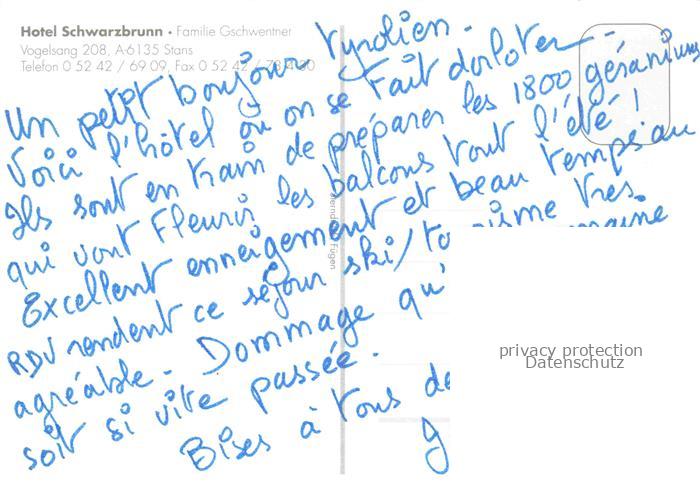 Hotel Schwarzbrunn • Familie Gschwentner
Vogelsang 208, A-6135 Stans
Telefon 0 52 42 / 69 09, Fax 0 52 42 /
Un petit bonjour Tyrolien.
Voici l'hôtel où on se fait dorloter -
Ils sont en train de préparer les 1800 géraniums
qui vont fleurir les balcons tout l'été !
Excellent enneigement et beau temps au
RDV rendent ce séjour ski/to risme très
agréable. Dommage qu' maine
soit si vite passée.
Bises à tous de
privacy protection
Datenschutz